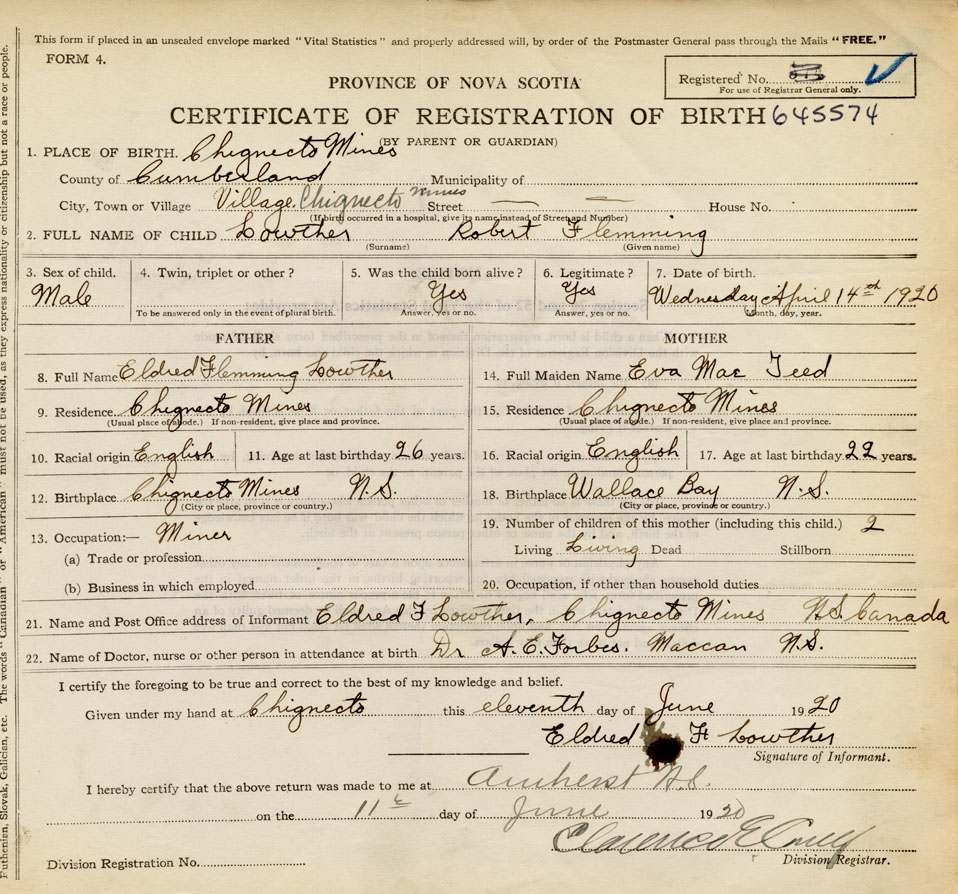 This form if placed in an unsealed envelope marked "Vital Statistics" and properly addressed will, by order of the Postmaster General pass through the Mails "FREE."
FORM 4.
Registered No.
For use of Registrar General only.
PROVINCE OF NOVA SCOTIA
CERTIFICATE OF REGISTRATION OF BIRTH 645574
(BY PARENT OR GUARDIAN)
1. PLACE OF BIRTH. Chignecto Mines
County of Cumberland Municipality of
City, Town or Village Village Chignecto mines Street House No.
(If birth occurred in a hospital, give its name instead of Street and Number)
2. FULL NAME OF CHILD Lowther Robert Flemming
(Surname) (Given name)
3. Sex of child. 4. Twin, triplet or other? 5. Was the child born alive? 6. Legitimate? 7. Date of birth.
Male Yes Yes Wednesday April 14th 1920
To be answered only in the event of plural birth. Answer, yes or no. Answer, yes or no. Month, day, year.
FATHER MOTHER
8. Full Name Eldred Flemming Lowther 14. Full Maiden Name Eva Mae Teed
9. Residence Chignecto Mines 15. Residence Chignecto Mines
(Usual place of abode.) If non-resident, give place and province. (Usual place of abode.) If non-resident, give place and province.
10. Racial origin English 11. Age at last birthday 26 years. 16. Racial origin English 17. Age at last birthday 22 years.
12. Birthplace Chignecto Mines N.S. 18. Birthplace Wallace Bay N.S.
(City or place, province or country.) (City or place, province or country.)
13. Occupation:— Miner 19. Number of children of this mother (including this child.) 2
(a) Trade or profession Living Living Dead Stillborn
(b) Business in which employed 20. Occupation, if other than household duties
21. Name and Post Office address of Informant Eldred F Lowther, Chignecto Mines N.S. Canada
22. Name of Doctor, nurse or other person in attendance at birth Dr A. E. Forbes. Maccan N.S.
I certify the foregoing to be true and correct to the best of my knowledge and belief.
Given under my hand at Chignecto this eleventh day of June 1920
Eldred F Lowther
Signature of Informant.
I hereby certify that the above return was made to me at Amherst N.S.
on the 11th day of June 1920
Clarence E
Division Registrar.
Division Registration No.
Ruthenian, Slovak, Galician, etc. The words "Canadian" or "American" must not be used, as they express nationality or citizenship but not a race or people.